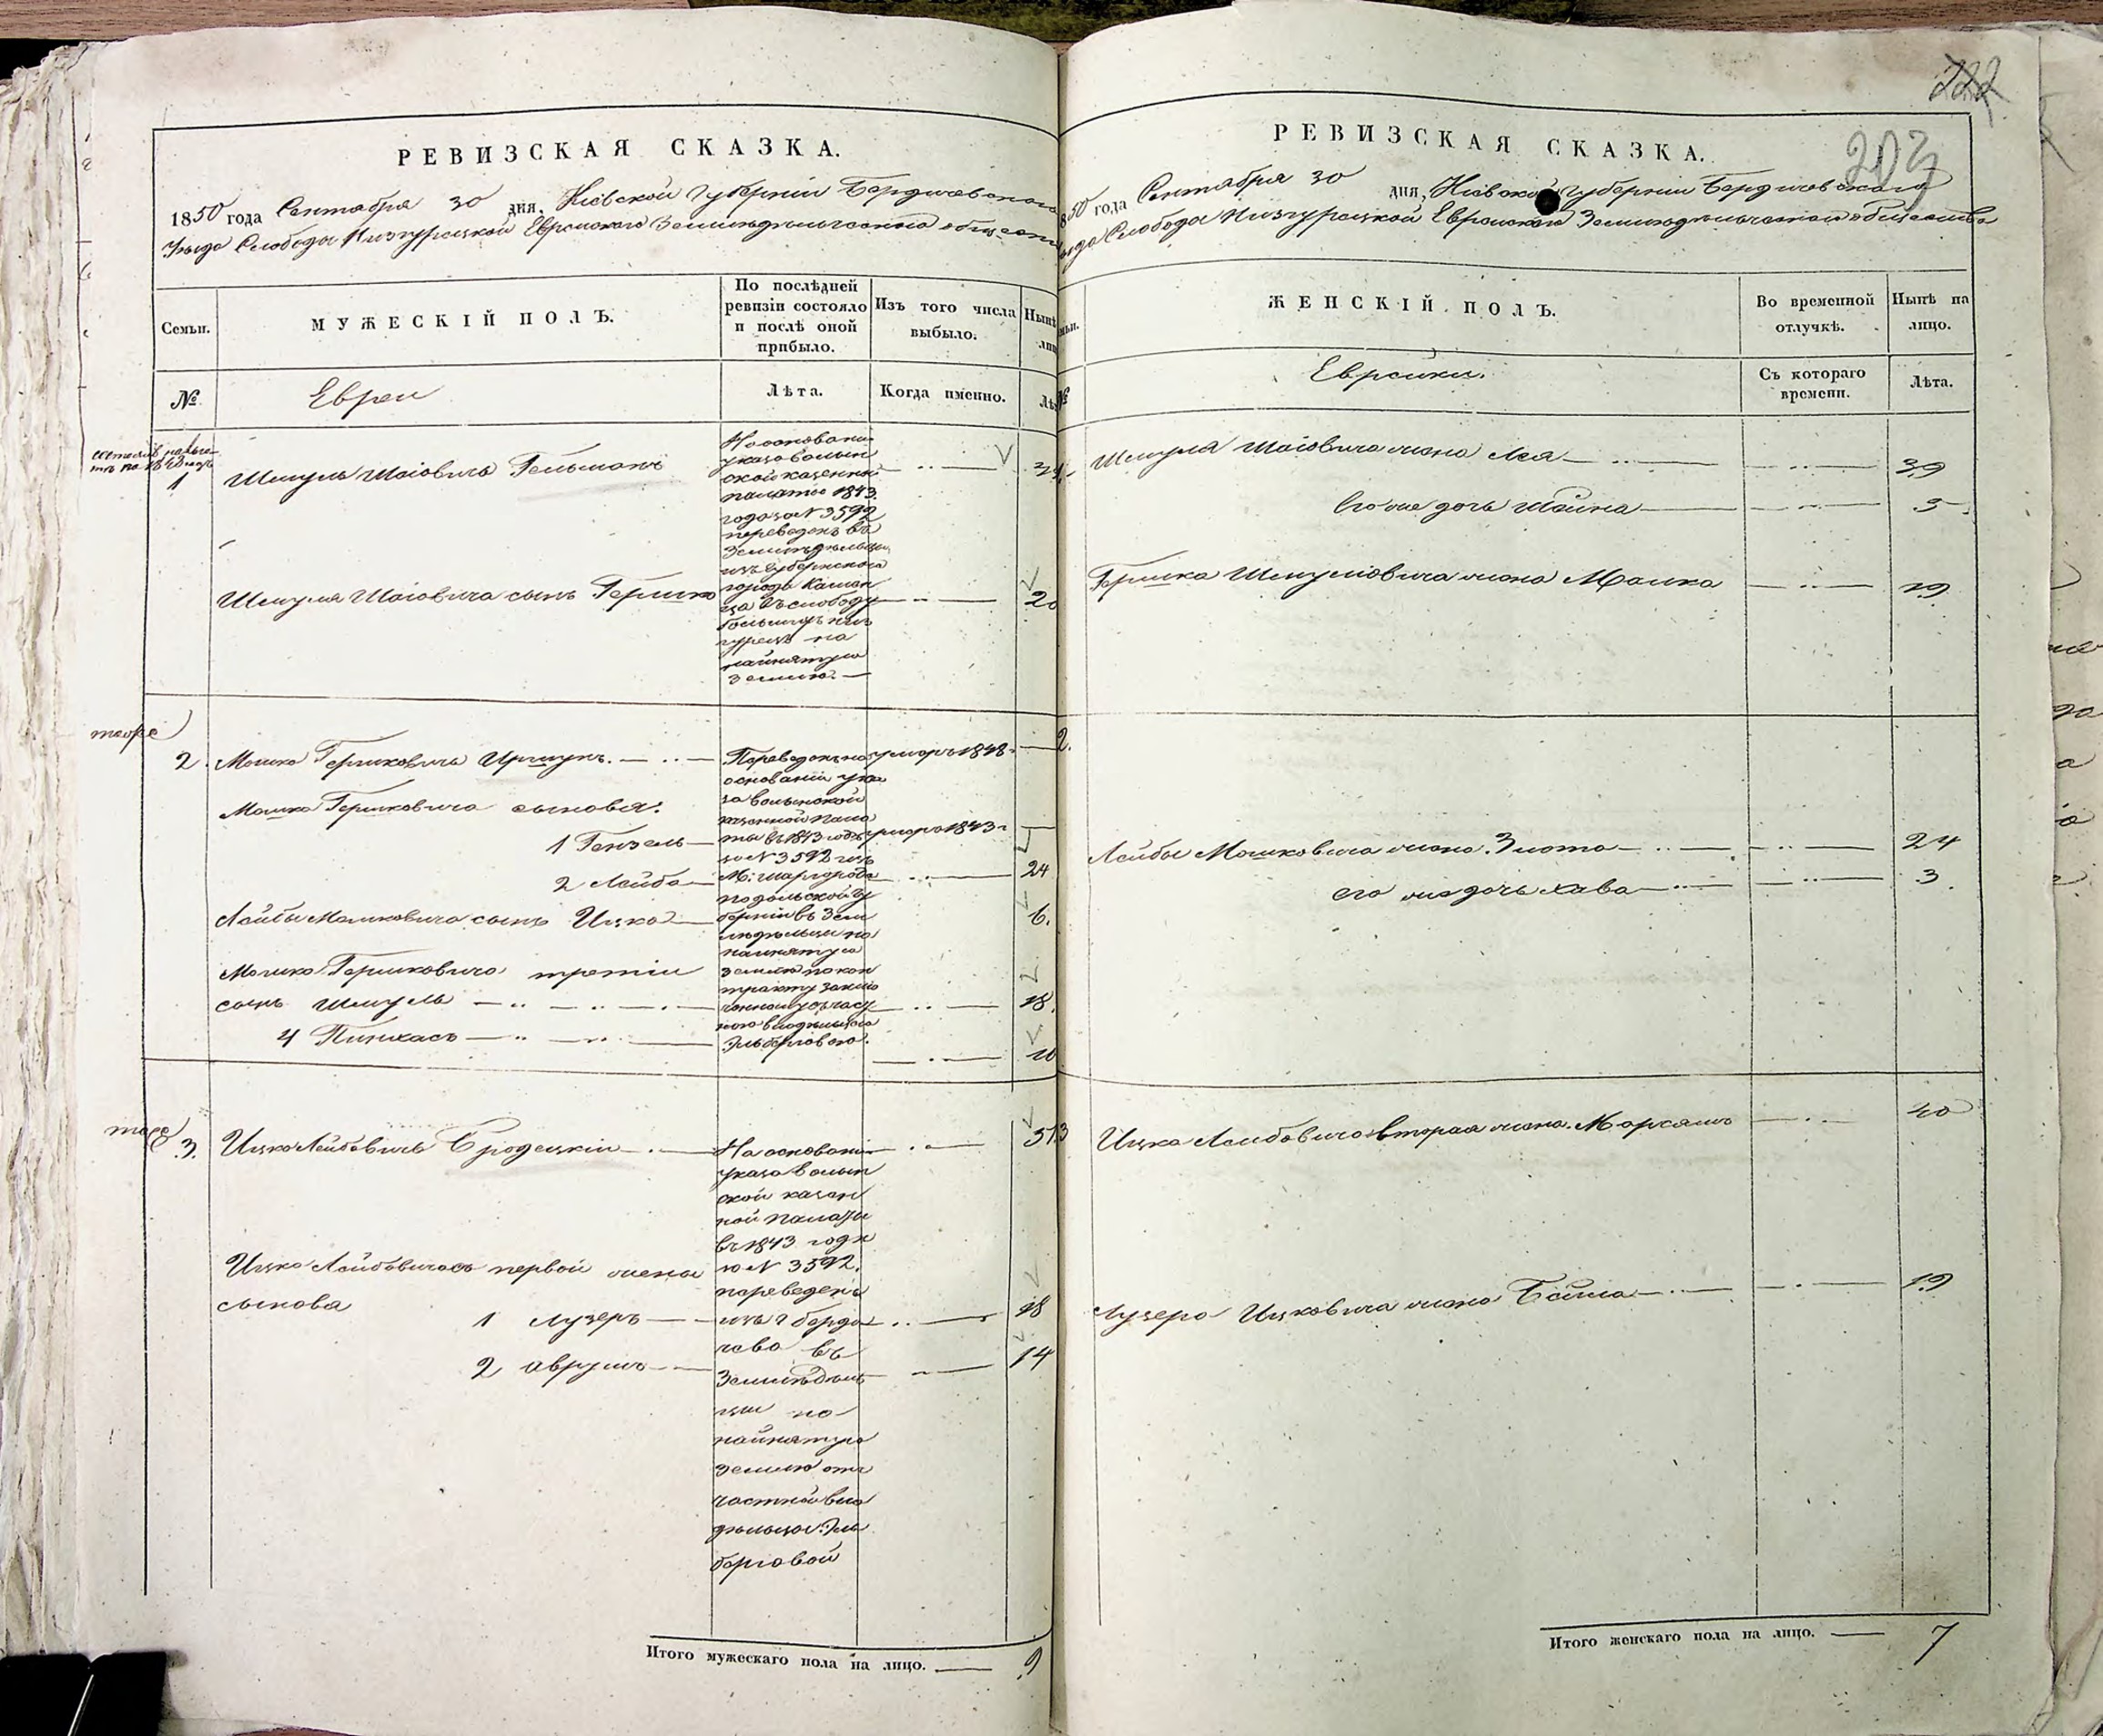 222
203
РЕВИЗСКАЯ СКАЗКА.
1850 года Сентября 30 дня, Кіевской Губерніи Бердичевскаго
Уѣзда Слободы Низгурецкой Еврейскаго Земледѣльческаго общест
Семьи.
МУЖЕСКІЙ ПОЛЪ.
По послѣдней
ревизіи состояло
и послѣ оной
прибыло.
Изъ того числа
выбыло.
Нынѣ
лиц
№
Евреи
Лѣта.
Когда именно.
Лѣ
1
Шмуль Шаіовичъ Гельманъ
На основаніи
указа Волын
ской казенной
палаты 1843
года за N 3592
переведенъ въ
Земледѣльцы
изъ губернскаго
города Камен
ца въ слободу
на
найнятую
землю.
Шмуля Шаіовича сынъ Гершко
20
тоже
2.
Мошко Гершковичъ
Переведенъ на
умеръ 1848.
основаніи ука
за Волынской
казенной пала
ты въ 1843 годѣ
за N 3592 изъ
М: Шаргорода
Подольской гу
берніи въ Зем
ледѣльцы на
найнятую
землю по кон
тракту заклю
Мошка Гершковича сыновья:
1 Гензель
умеръ 1843 г
2 Лейба
24
Лейбы Мошковича сынъ Ицко
6.
Мошка Гершковича третій
сынъ Шмуль
18.
4 Пинхасъ
10
тоже
3.
Ицко Лейбовичъ Бродецкій
51
На основаніи
указа Волын
ской казен
ной Палаты
въ 1843 годѣ
за N 3592.
переведенъ
изъ г Берди
чева въ
Земледѣль
цы на
найнятую
землю отъ
частной вла
дѣлицы
Ицка Лейбовича съ первой жены
сыновья
1 Лузеръ
18
2 Аврумъ
14
Итого мужескаго пола на лицо. 9
РЕВИЗСКАЯ СКАЗКА.
850 года Сентября 30 дня, Кіевской Губерніи Бердичевскаго
ѣзда Слободы Низгурецкой Еврейскаго Земледѣльческаго общества
мьи.
ЖЕНСКІЙ ПОЛЪ.
Во временной
отлучкѣ.
Нынѣ на
лицо.
№
Еврейки.
Съ котораго
времени.
Лѣта.
Шмуля Шаіовича жена Лея 39
Его же дочь Шейна 5
Гершка Шмуліовича жена Малка 19
2.
Лейбы Мошковича жена Злота 24
его же дочь Хава 3.
3
Ицка Лейбовича вторая жена Марьямъ 40
Лузера Ицковича жена Бейла 19
Итого женскаго пола на лицо. 7